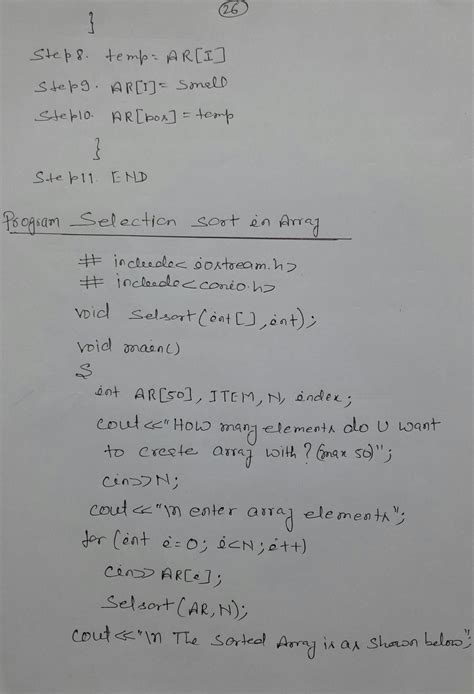 26
}
Step8. temp= AR[I]
Step9. AR[I]= Small
Step10. AR[pos]=temp
}
Step11. END
Program Selection sort in Array
# include<iostream.h>
# include<conio.h>
void Selsort(int[],int);
void main()
{
int AR[50], ITEM, N, index;
cout<<"How many elements do U want
to create array with? (max 50)";
cin>>N;
cout<<"\n enter array elements";
for (int i=0; i<N; i++)
cin>>AR[i];
Selsort(AR,N);
cout<<"\n The Sorted Array is as shown below";